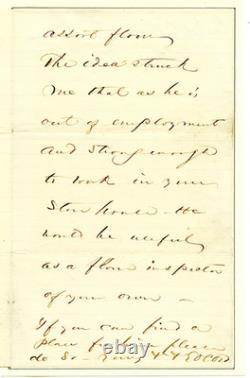 assort flour
The idea struck
me that as he is
out of employment
and strong enough
to work in your
Store house - He
would be useful
as a flour inspector
of your own -
If you can find a
place for him please
do so - Yours